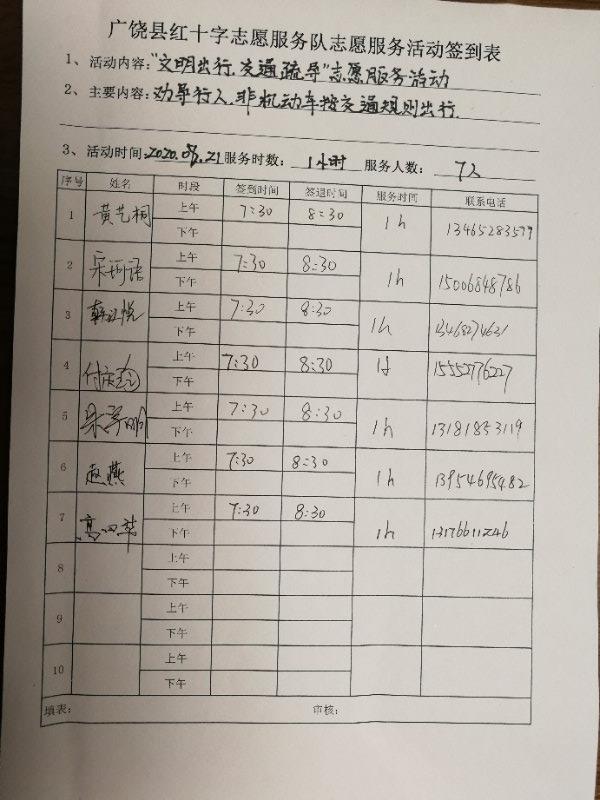 广饶县红十字志愿服务队志愿服务活动签到表
1、活动内容:"文明出行.交通疏导"志愿服务活动
2、主要内容:劝导行人.非机动车按交通规则出行.
3、活动时间:2020.08.21 服务时数: 1小时 服务人数: 7人
序号 姓名 时段 签到时间 签退时间 服务时间 联系电话
1 黄艺桐 上午 7:30 8:30 1h 13465283579
下午
2 宋珂语 上午 7:30 8:30 1h 15006848786
下午
3 上午 7:30 8:30 1h 13468274631
下午
4 上午 7:30 8:30 1h 15552776227
下午
5 上午 7:30 8:30 1h 13181853119
下午
6 赵燕 上午 7:30 8:30 1h 13954695482
下午
7 上午 7:30 8:30 1h 13176611246
下午
8 上午
下午
9 上午
下午
10 上午
下午
填表: 审核: